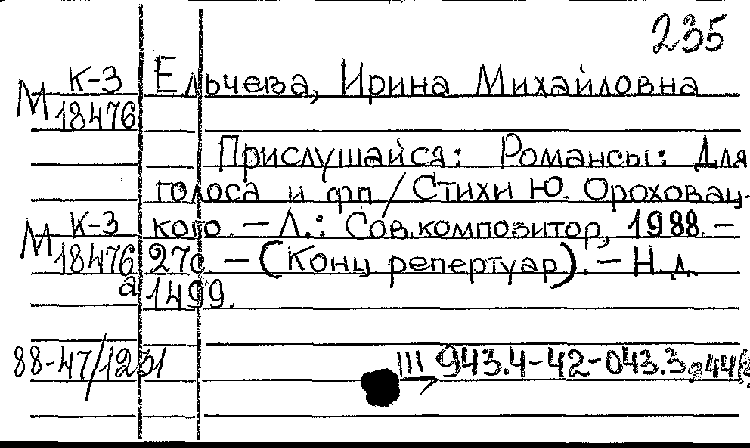 235
К-3 Ельчева, Ирина Михайловна
М 18476
Прислушайся: Романсы: Для
голоса и фп / Стихи Ю. Ороховац-
К-3 кого. — Л.: Сов.композитор, 1988. —
М 18476 27с. — (Конц репертуар). — Н.д.
а 1499.
88-47/1231 III 943.4-42-043.3